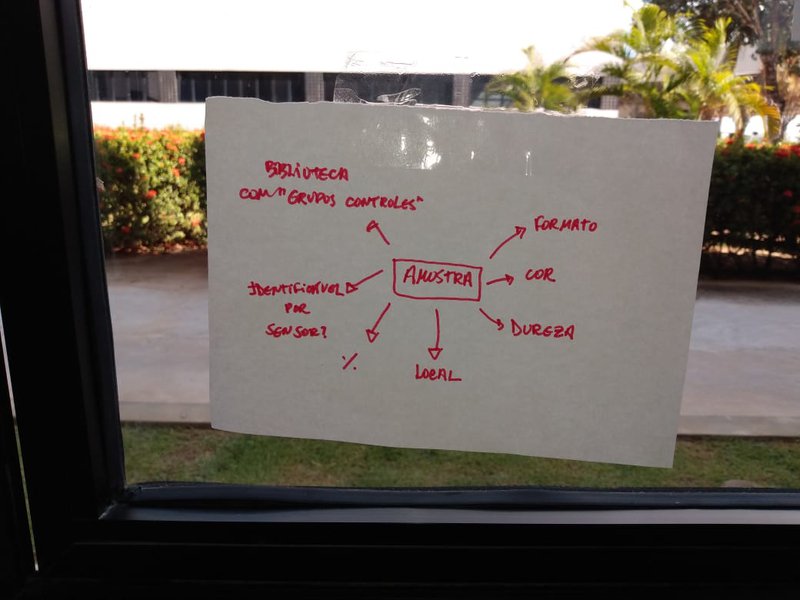 BIBLIOTECA
COM "GRUPOS CONTROLES"
FORMATO
AMOSTRA
COR
IDENTIFICÁVEL
POR
SENSOR?
DUREZA
%
LOCAL